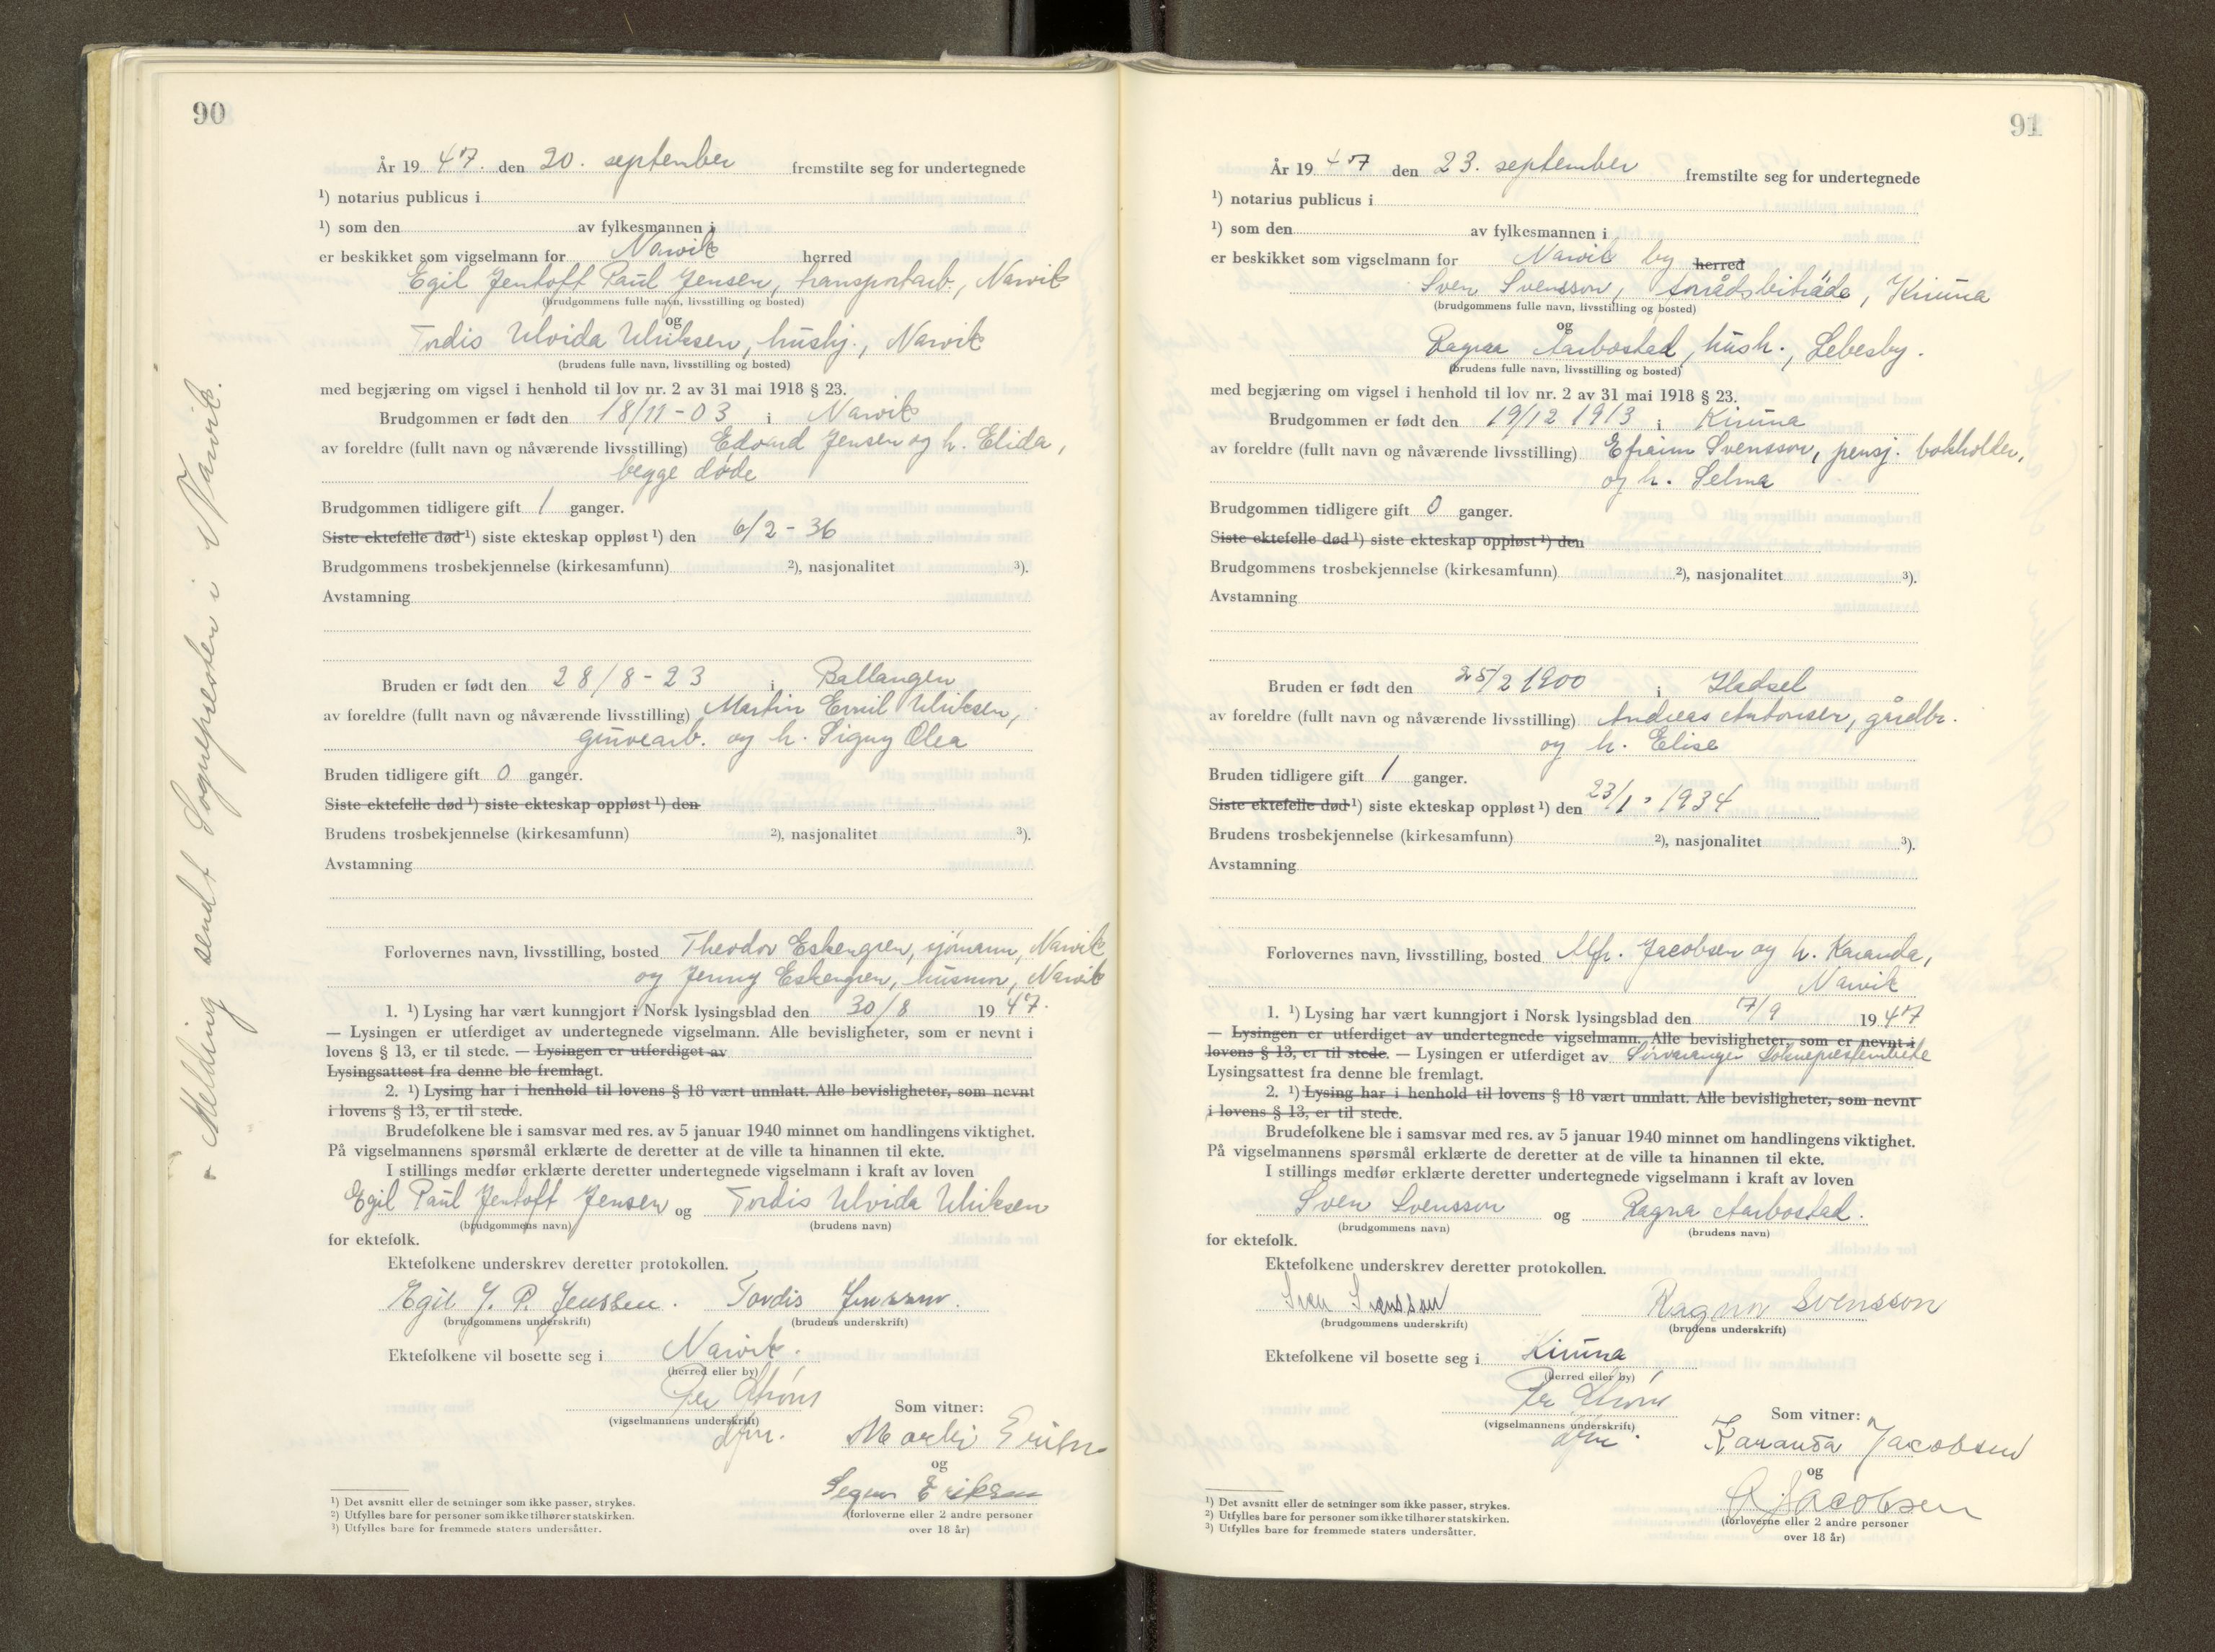 90
År 19 47. den 20. september fremstilte seg for undertegnede
¹) notarius publicus i
¹) som den av fylkesmannen i
er beskikket som vigselmann for Narvik herred
Egil Jentoft Paul Jensen, transportarb., Narvik
(brudgommens fulle navn, livsstilling og bosted)
og
Tordis Ulvida Ulriksen, hushj., Narvik
(brudens fulle navn, livsstilling og bosted)
med begjæring om vigsel i henhold til lov nr. 2 av 31 mai 1918 § 23.
Brudgommen er født den 18/11-03 i Narvik
av foreldre (fullt navn og nåværende livsstilling) Edvard Jensen og h. Elida,
begge døde
Brudgommen tidligere gift 1 ganger.
Siste ektefelle død ¹) siste ekteskap oppløst ¹) den 6/2-36
Brudgommens trosbekjennelse (kirkesamfunn) ²), nasjonalitet ³).
Avstamning
Bruden er født den 28/8-23 i Ballangen
av foreldre (fullt navn og nåværende livsstilling) Martin Emil Ulriksen,
gruvearb. og h. Signy Olea
Bruden tidligere gift 0 ganger.
Siste ektefelle død ¹) siste ekteskap oppløst ¹) den
Brudens trosbekjennelse (kirkesamfunn) ²), nasjonalitet ³).
Avstamning
Forlovernes navn, livsstilling, bosted Theodor Eskengren, sjømann, Narvik
og Jenny Eskengren, husmor, Narvik
1. ¹) Lysing har vært kunngjort i Norsk lysingsblad den 30/8 19 47.
— Lysingen er utferdiget av undertegnede vigselmann. Alle bevisligheter, som er nevnt i
lovens § 13, er til stede. — Lysingen er utferdiget av
Lysingsattest fra denne ble fremlagt.
2. ¹) Lysing har i henhold til lovens § 18 vært unnlatt. Alle bevisligheter, som nevnt
i lovens § 13, er til stede.
Brudefolkene ble i samsvar med res. av 5 januar 1940 minnet om handlingens viktighet.
På vigselmannens spørsmål erklærte de deretter at de ville ta hinannen til ekte.
I stillings medfør erklærte deretter undertegnede vigselmann i kraft av loven
Egil Paul Jentoft Jensen og Tordis Ulvida Ulriksen
(brudgommens navn) (brudens navn)
for ektefolk.
Ektefolkene underskrev deretter protokollen.
Egil J. P. Jenssen. Tordis Jenssen.
(brudgommens underskrift) (brudens underskrift)
Ektefolkene vil bosette seg i Narvik.
(herred eller by)
Per
(vigselmannens underskrift)
Som vitner:
og
Eriksen
(forloverne eller 2 andre personer
over 18 år)
¹) Det avsnitt eller de setninger som ikke passer, strykes.
²) Utfylles bare for personer som ikke tilhører statskirken.
³) Utfylles bare for fremmede staters undersåtter.
Melding sendt Sognepresten i Narvik.
91
År 19 47 den 23. september fremstilte seg for undertegnede
¹) notarius publicus i
¹) som den av fylkesmannen i
er beskikket som vigselmann for Narvik by herred
Sven Svensson, förrådsbiträde, Kiruna
(brudgommens fulle navn, livsstilling og bosted)
og
Ragna Aarbostad, hush., Lebesby.
(brudens fulle navn, livsstilling og bosted)
med begjæring om vigsel i henhold til lov nr. 2 av 31 mai 1918 § 23.
Brudgommen er født den 19/12 1913 i Kiruna
av foreldre (fullt navn og nåværende livsstilling) Efraim Svensson, pensj. bokholder,
og h. Selma
Brudgommen tidligere gift 0 ganger.
Siste ektefelle død ¹) siste ekteskap oppløst ¹) den
Brudgommens trosbekjennelse (kirkesamfunn) ²), nasjonalitet ³).
Avstamning
Bruden er født den 25/2 1900 i Hadsel
av foreldre (fullt navn og nåværende livsstilling) Andreas Antonsen, gårdbr.
og h. Elise
Bruden tidligere gift 1 ganger.
Siste ektefelle død ¹) siste ekteskap oppløst ¹) den 23/1 1934
Brudens trosbekjennelse (kirkesamfunn) ²), nasjonalitet ³).
Avstamning
Forlovernes navn, livsstilling, bosted Alfr. Jacobsen og h. Karanda,
Narvik
1. ¹) Lysing har vært kunngjort i Norsk lysingsblad den 17/9 19 47
— Lysingen er utferdiget av undertegnede vigselmann. Alle bevisligheter, som er nevnt i
lovens § 13, er til stede. — Lysingen er utferdiget av Sørvaranger Sokneprestembete
Lysingsattest fra denne ble fremlagt.
2. ¹) Lysing har i henhold til lovens § 18 vært unnlatt. Alle bevisligheter, som nevnt
i lovens § 13, er til stede.
Brudefolkene ble i samsvar med res. av 5 januar 1940 minnet om handlingens viktighet.
På vigselmannens spørsmål erklærte de deretter at de ville ta hinannen til ekte.
I stillings medfør erklærte deretter undertegnede vigselmann i kraft av loven
Sven Svensson og Ragna Aarbostad.
(brudgommens navn) (brudens navn)
for ektefolk.
Ektefolkene underskrev deretter protokollen.
Sven Svensson Ragna Svensson
(brudgommens underskrift) (brudens underskrift)
Ektefolkene vil bosette seg i Kiruna
(herred eller by)
Per
(vigselmannens underskrift)
Som vitner:
Karanda Jacobsen
og
A Jacobsen
(forloverne eller 2 andre personer
over 18 år)
¹) Det avsnitt eller de setninger som ikke passer, strykes.
²) Utfylles bare for personer som ikke tilhører statskirken.
³) Utfylles bare for fremmede staters undersåtter.